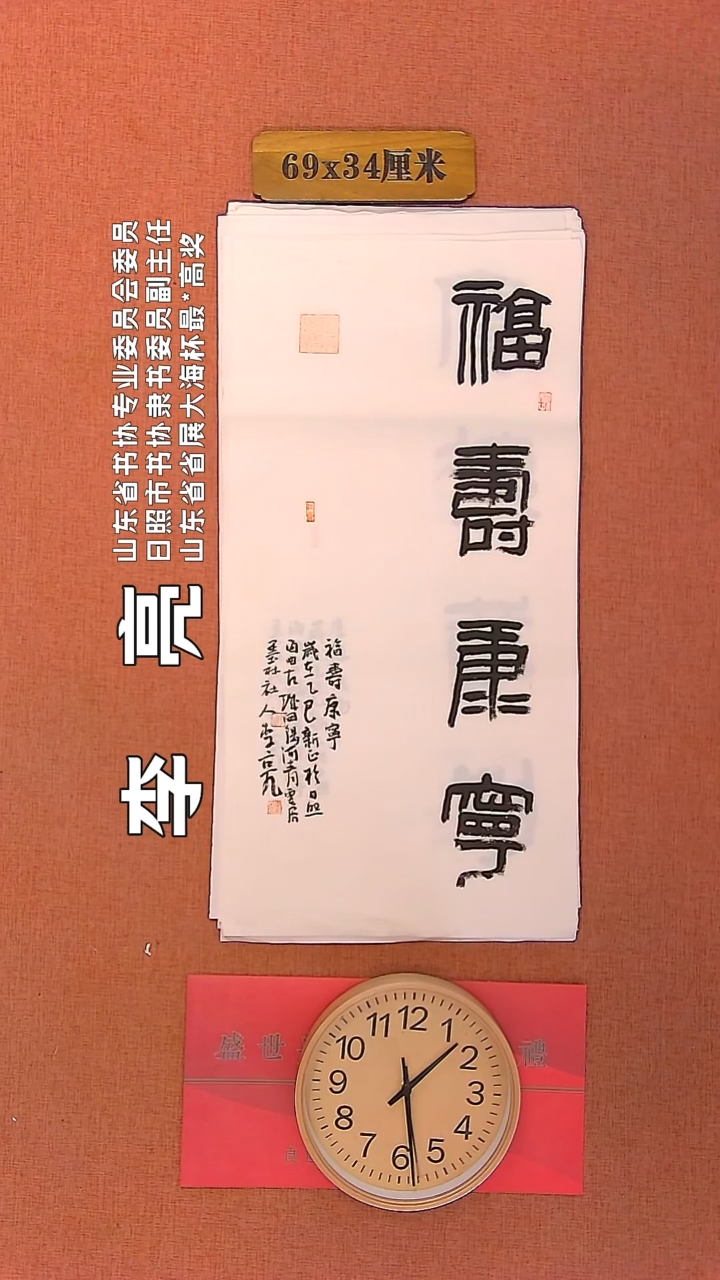 69x34厘米
福壽康寧
福壽康寧
歲在乙巳新正於日照
墨社社人李亮
山东省书协专业委员会委员
日照市书协隶书委员副主任
山东省省展大海杯最*高奖
李亮
盛世
禮
12
1
2
3
4
5
6
7
8
9
10
11